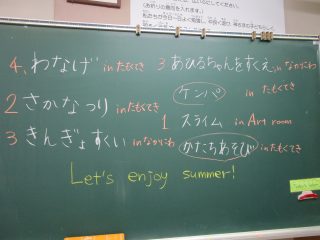 4、わなげ in たもくてき
3 あひるちゃんをすくえ in なかにわ
ケンパ in たもくてき
2 さかなつり in たもくてき
1 スライム in Art room
3 きんぎょすくい in なかにわ
かたちあそび in たもくてき
Let's enjoy summer!